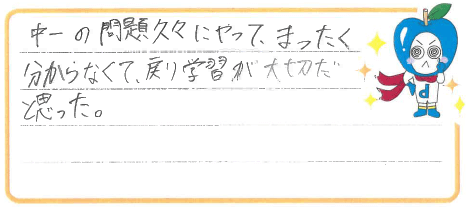 中一の問題久々にやって、まったく
分からなくて、戻り学習が大切だ
と思った。
d